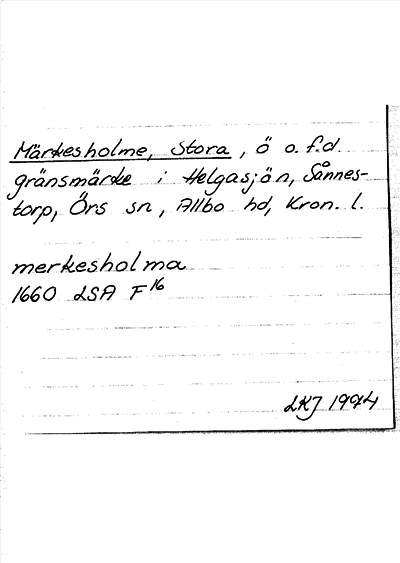 Märkesholme, Stora, ö o.f.d.
gränsmärke i Helgasjön, Sånnes-
torp, Örs sn, Allbo hd, Kron. l.
merkesholma
1660 LSA F16
LKJ 1974